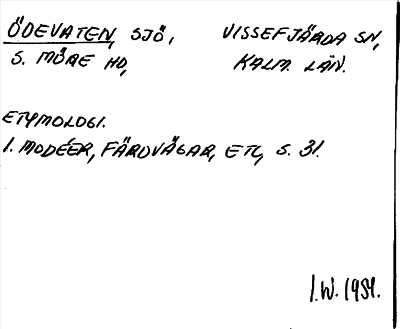 ÖDEVATEN, SJÖ, VISSEFJÄRDA SN,
S. MÖRE HD, KALM. LÄN.
ETYMOLOGI.
I. MODÉER, FÄRDVÄGAR, ETC, S. 31.
I.W. 1984.